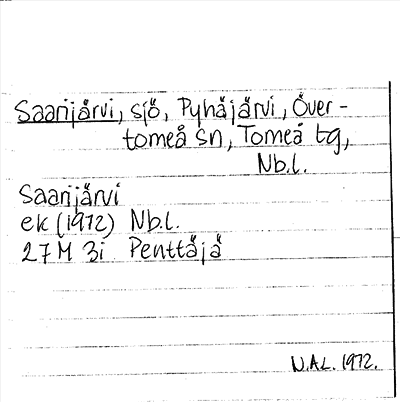 Saarijärvi, sjö, Pyhäjärvi, Över-
torneå sn, Torneå tg,
Nb.l.
Saarijärvi
ek (1972) Nb.l.
27M 3i Penttäjä
N.ÄL. 1972.